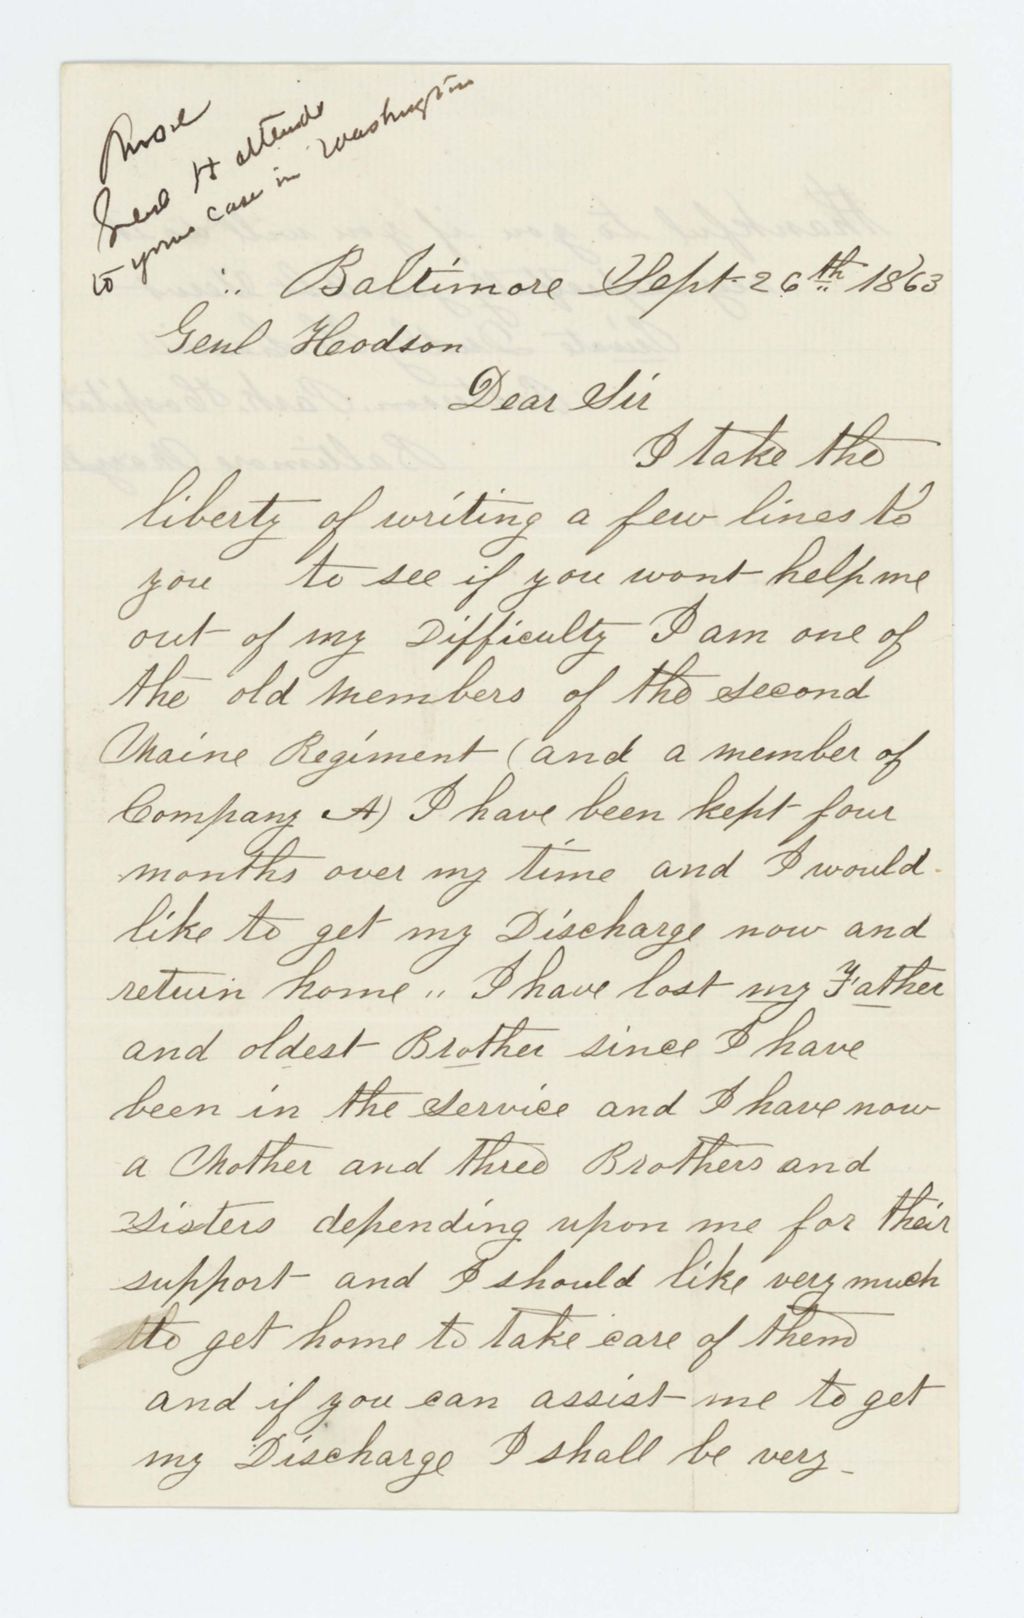 Genl H attends
to your case in Washington
Baltimore Sept 26th 1863
Genl Hodson
Dear Sir
I take the
liberty of writing a few lines to
you to see if you wont help me
out of my Difficulty I am one of
the old members of the second
Maine Regiment (and a member of
Company A) I have been kept four
months over my time and I would
like to get my Discharge now and
return home " I have lost my Father
and oldest Brother since I have
been in the service and I have now
a Mother and three Brothers and
Sisters depending upon me for their
support and I should like very much
to get home to take care of them
and if you can assist me to get
my Discharge I shall be very